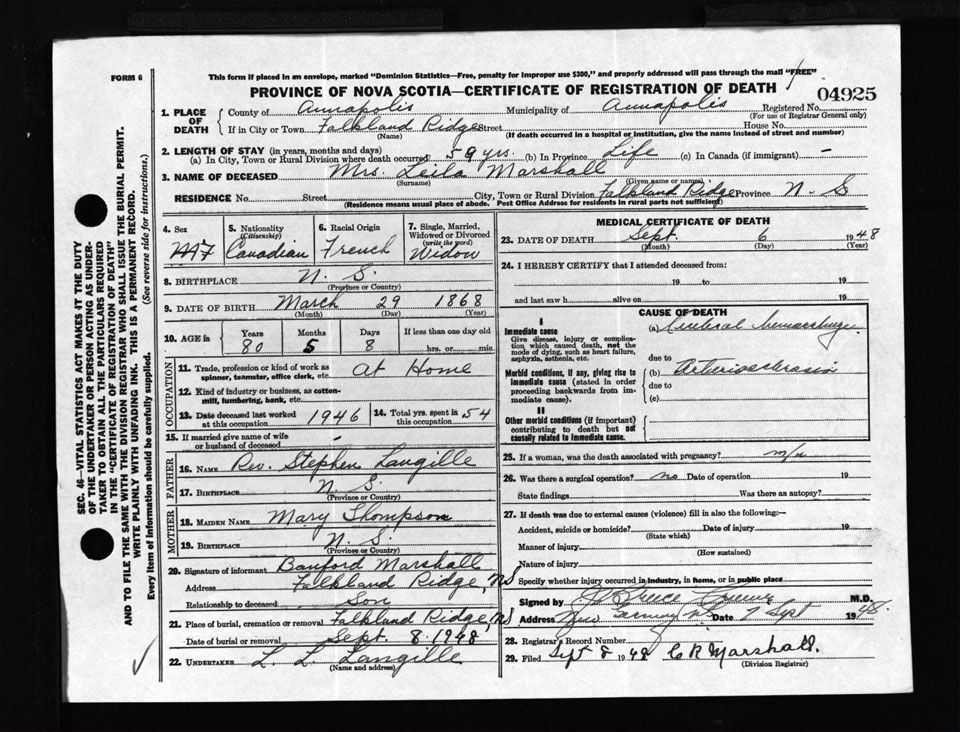 FORM 6
This form if placed in an envelope, marked "Dominion Statistics—Free, penalty for improper use $300," and properly addressed will pass through the mail "FREE"
PROVINCE OF NOVA SCOTIA—CERTIFICATE OF REGISTRATION OF DEATH
04925
1. PLACE OF DEATH
County of Annapolis Municipality of Annapolis Registered No.
(For use of Registrar General only)
If in City or Town Falkland Ridge Street House No.
(Name) (If death occurred in a hospital or institution, give the name instead of street and number)
2. LENGTH OF STAY (in years, months and days)
(a) In City, Town or Rural Division where death occurred 59 yrs. (b) In Province Life (c) In Canada (if immigrant) –
3. NAME OF DECEASED Mrs. Leila Marshall
(Surname) (Given name or names)
RESIDENCE No. Street City, Town or Rural Division Falkland Ridge Province N S
(Residence means usual place of abode. Post Office Address for residents in rural parts not sufficient)
4. Sex F
5. Nationality (Citizenship) Canadian
6. Racial Origin French
7. Single, Married, Widowed or Divorced (write the word) Widow
8. BIRTHPLACE N. S.
(Province or Country)
9. DATE OF BIRTH March 29 1868
(Month) (Day) (Year)
10. AGE in Years Months Days If less than one day old
80 5 8 hrs. or min.
OCCUPATION
11. Trade, profession or kind of work as spinner, teamster, office clerk, etc. At Home
12. Kind of industry or business, as cotton-mill, lumbering, bank, etc.
13. Date deceased last worked at this occupation 1946
14. Total yrs. spent in this occupation 54
15. If married give name of wife or husband of deceased -
FATHER
16. NAME Rev. Stephen Langille
17. BIRTHPLACE N. S.
(Province or Country)
MOTHER
18. MAIDEN NAME Mary Thompson
19. BIRTHPLACE N. S.
(Province or Country)
20. Signature of informant Banford Marshall
Address Falkland Ridge, NS
Relationship to deceased Son
21. Place of burial, cremation or removal Falkland Ridge, NS
Date of burial or removal Sept. 8. 1948
22. UNDERTAKER L. L. Langille
(Name and address)
MEDICAL CERTIFICATE OF DEATH
23. DATE OF DEATH Sept. 6 1948
(Month) (Day) (Year)
24. I HEREBY CERTIFY that I attended deceased from:
19 to 19
and last saw h alive on 19
CAUSE OF DEATH
I
Immediate cause
Give disease, injury or complication which caused death, not the mode of dying, such as heart failure, asphyxia, asthenia, etc.
(a) Cerebral hemorrhage
due to
Morbid conditions, if any, giving rise to immediate cause (stated in order proceeding backwards from immediate cause).
(b) Arteriosclerosis
due to
(c)
II
Other morbid conditions (if important) contributing to death but not causally related to immediate cause.
25. If a woman, was the death associated with pregnancy?
26. Was there a surgical operation? no Date of operation 19
State findings Was there an autopsy?
27. If death was due to external causes (violence) fill in also the following:—
Accident, suicide or homicide? Date of injury 19
(State which)
Manner of injury
(How sustained)
Nature of injury
Specify whether injury occurred in industry, in home, or in public place
Signed by M.D.
Address Date 7 Sept 1948.
28. Registrar's Record Number
29. Filed Sept 8 1948 C R Marshall.
(Division Registrar)
SEC. 46—VITAL STATISTICS ACT MAKES IT THE DUTY
OF THE UNDERTAKER OR PERSON ACTING AS UNDER-
TAKER TO OBTAIN ALL THE PARTICULARS REQUIRED
IN THE "CERTIFICATE OF REGISTRATION OF DEATH"
AND TO FILE THE SAME WITH THE DIVISION REGISTRAR WHO SHALL ISSUE THE BURIAL PERMIT.
WRITE PLAINLY WITH UNFADING INK. THIS IS A PERMANENT RECORD.
Every item of information should be carefully supplied. (See reverse side for instructions.)